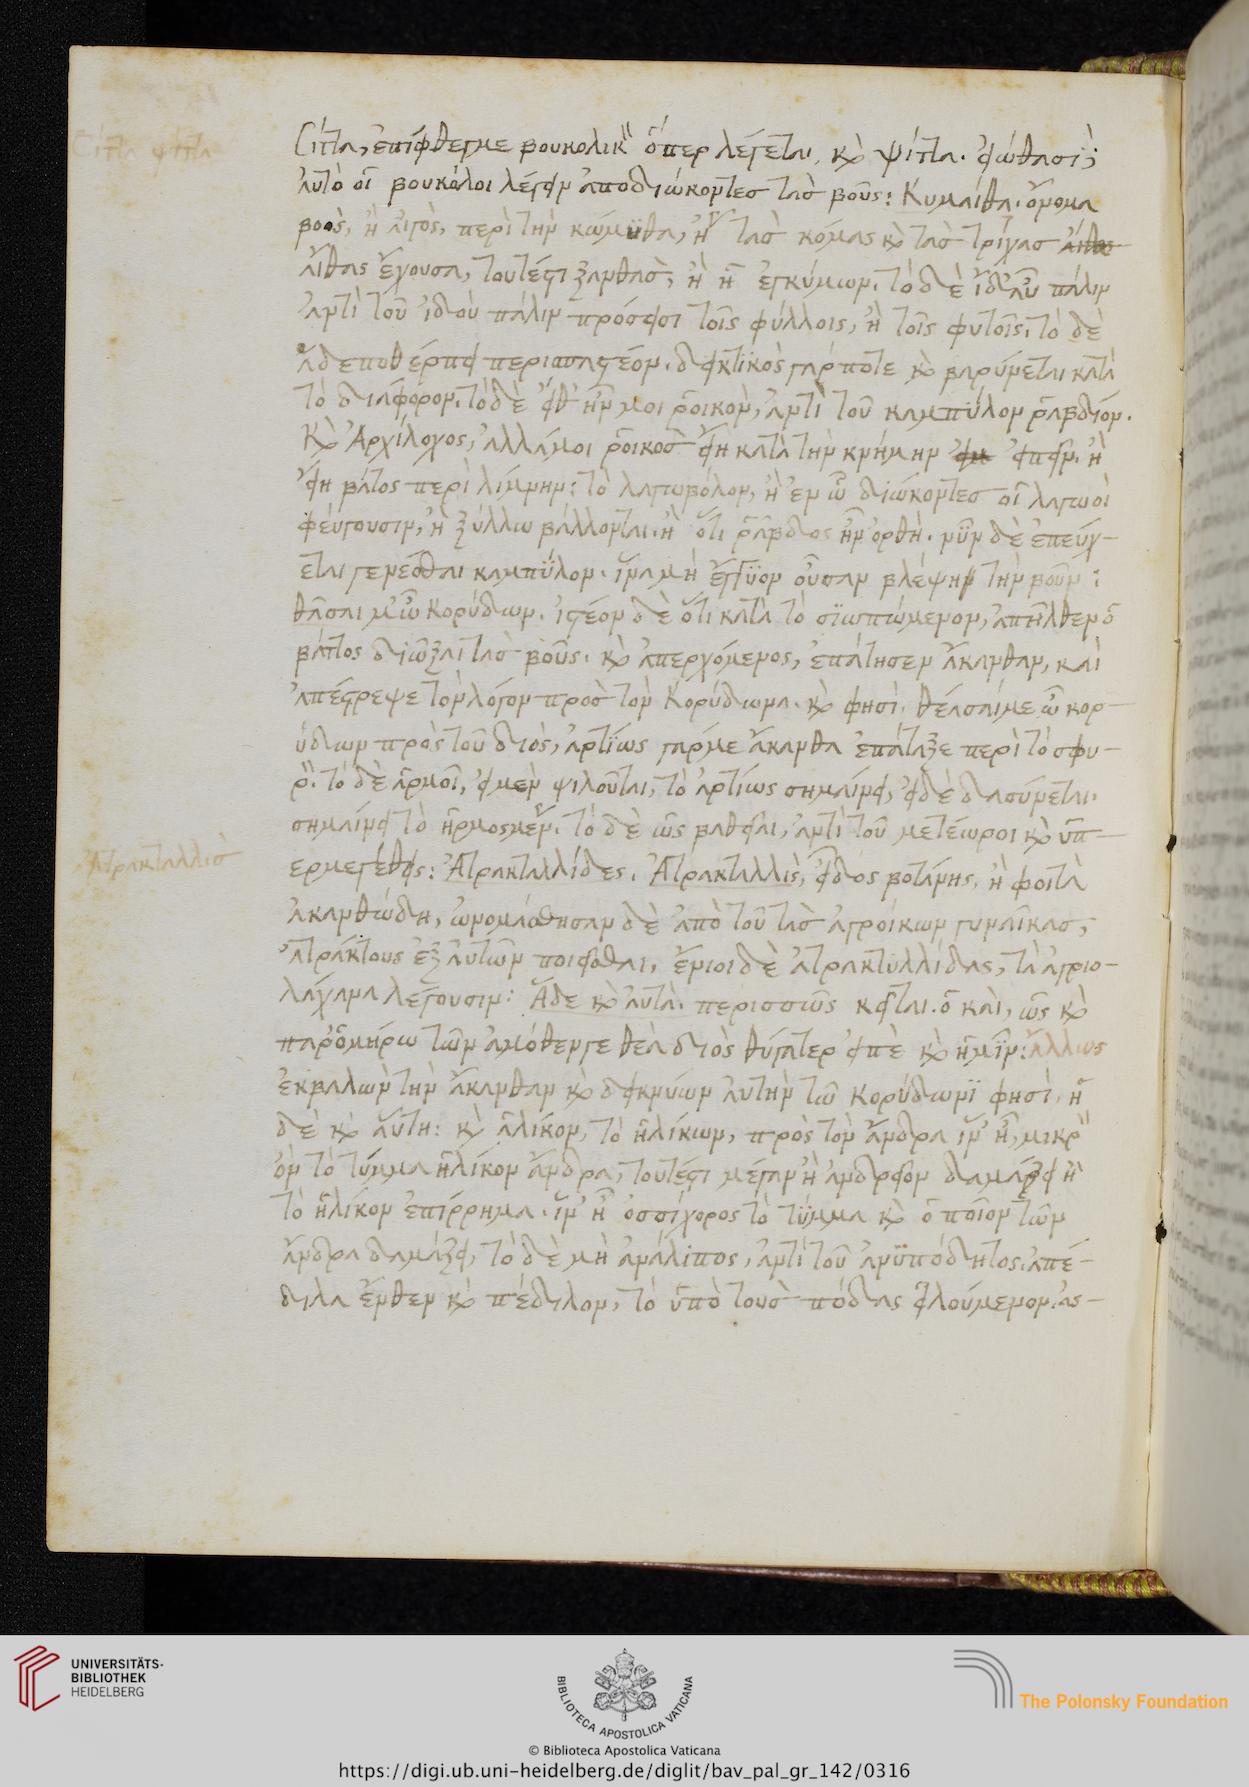 Σίττα ψίττα
Σίττα, ἐπίφθεγμε βουκολικ ὅπερ λέγεται, κ̀ ψίττα. εἰώθασι;
αὐτὸ οἱ βουκόλοι λέγειν ἀποδιώκοντεσ τὰσ βοῦς: Κυμαίθα. ὄνομα
βοὸς, ἢ αἰγὸς, περὶ τὴν κώμϋθα, ἢ τὰσ κόμας κ̀ τὰσ τρίχασ
αἴθας ἔχουσα, τουτέστι ξανθασ, ἢ ἡ ἐγκύμων. τὸ δὲ ἴδ' αὖ πάλιν
ἀντὶ τοῦ ἰδοὺ πάλιν πρόσεισι τοῖς φύλλοις, ἢ τοῖς φυτοῖς. τὸ δὲ
περισπαστέον. δεικτϊκὸς γάρ ποτε κ̀ βαρύνεται κατὰ
τὸ διάφορον. τὸ δὲ εἴθ' ἦν μοι ῥοικὸν, ἀντὶ τοῦ καμπύλον ῥαβδίον.
κ̀ Ἀρχίλοχος, ἀλλά μοι ῥοικοσ εἴη κατὰ τὴν κνήμην εἰπεῖν. ἢ
εἴη βάτος περὶ λίμνην: τὸ λαγωβόλον, ἢ ἐν ᾧ διώκοντεσ οἱ λαγωοὶ
φεύγουσιν, ἢ ξύλλω βάλλονται. ἢ ὅτι ῥάβδος ἦν ὀρθὴ. νῦν δὲ ἐπεύχ-
εται γενέσθαι καμπύλον. ἵνα μὴ ἔγγϋον οὖσαν βλέψην τὴν βοῦν:
θᾶσαι μ' ὦ Κορύδων. ἰστέον δὲ ὅτι κατὰ τὸ σϊωπώμενον, ἀπῆλθεν ὁ
βάττος διῶξαι τὰσ βοῦς. κ̀ ἀπερχόμενος, ἐπάτησεν ἄκανθαν, καὶ
ἀπέστρεψε τὸν λόγον προσ τὸν Κορύδωνα. κ̀ φησὶ. θέασαί με ὦ κορ-
ύδων πρὸς τοῦ διὸς, ἀρτΐως γάρ με ἄκανθα ἐπάταξε περὶ τὸ σφυ-
ρ. τὸ δὲ ἁρμοῖ, εἰ μὲν ψιλοῦται, τὸ ἀρτίως σημαίνει, εἰ δὲ δασύνεται.
σημαίνει τὸ ἡρμοσμέν. τὸ δὲ ὡς βαθεῖαι, ἀντὶ τοῦ μετέωροι κ̀ ὑπ-
Ἀτρακταλλισ
ερμεγέθεις: Ἀτρακταλλίδες. Ἀτρακταλλὶς, εἶδος βοτάνης, ἢ φοιτὰ
ἀκανθώδη, ὠνομάσθησαν δὲ ἀπὸ τοῦ τὰσ ἀγροίκων γυναῖκασ,
ἀτράκτους ἐξ αὐτῶν ποιεῖσθαι, ἔνιοι δὲ ἀτρακτυλλίδας, τὰ ἀγριο-
λάχανα λέγουσιν: Ἅδε κ̀ αὐτὰ. περισσῶς κεῖται. ὁ καὶ, ὡς κ̀
παρ' ὁμήρω τῶν ἁμόθεν γε θεὰ διὸς θύγατερ εἰπὲ κ̀ ἡμῖν: ἄλλως
ἐκβαλὼν τὴν ἄκανθαν κ̀ δεικνύων αὐτὴν τῶ Κορύδωνϊ φησὶ, ἥ
δὲ κ̀ αὕτη: κ̀ ἁλίκον, τὸ ἡλίκων, πρὸς τὸν ἄνδρα ἵν' ἦ, μικρ
ὂν τὸ τύμμα ἡλίκον ἄνδρα, τουτέστι μέγαν ἢ ἀνδρεῖον δαμάζει ἢ
τὸ ἡλίκον ἐπίρρημα. ἵν' ἦ ὁσσίχορος τὸ τύμμα κ̀ ὁποῖον τῶν
ἄνδρα δαμάζει, τὸ δὲ μὴ ἀνάλιπος, ἀντὶ τοῦ ἀνϋπόδητος. ἀπέ-
διλα ἔνθεν κ̀ πέδιλον, τὸ ὑπὸ τουσ πόδας εἰλούμενον. ἀσ-
UNIVERSITÄTS-
BIBLIOTHEK
HEIDELBERG
BIBLIOTECA APOSTOLICA VATICANA
The Polonsky Foundation
© Biblioteca Apostolica Vaticana
https://digi.ub.uni-heidelberg.de/diglit/bav_pal_gr_142/0316